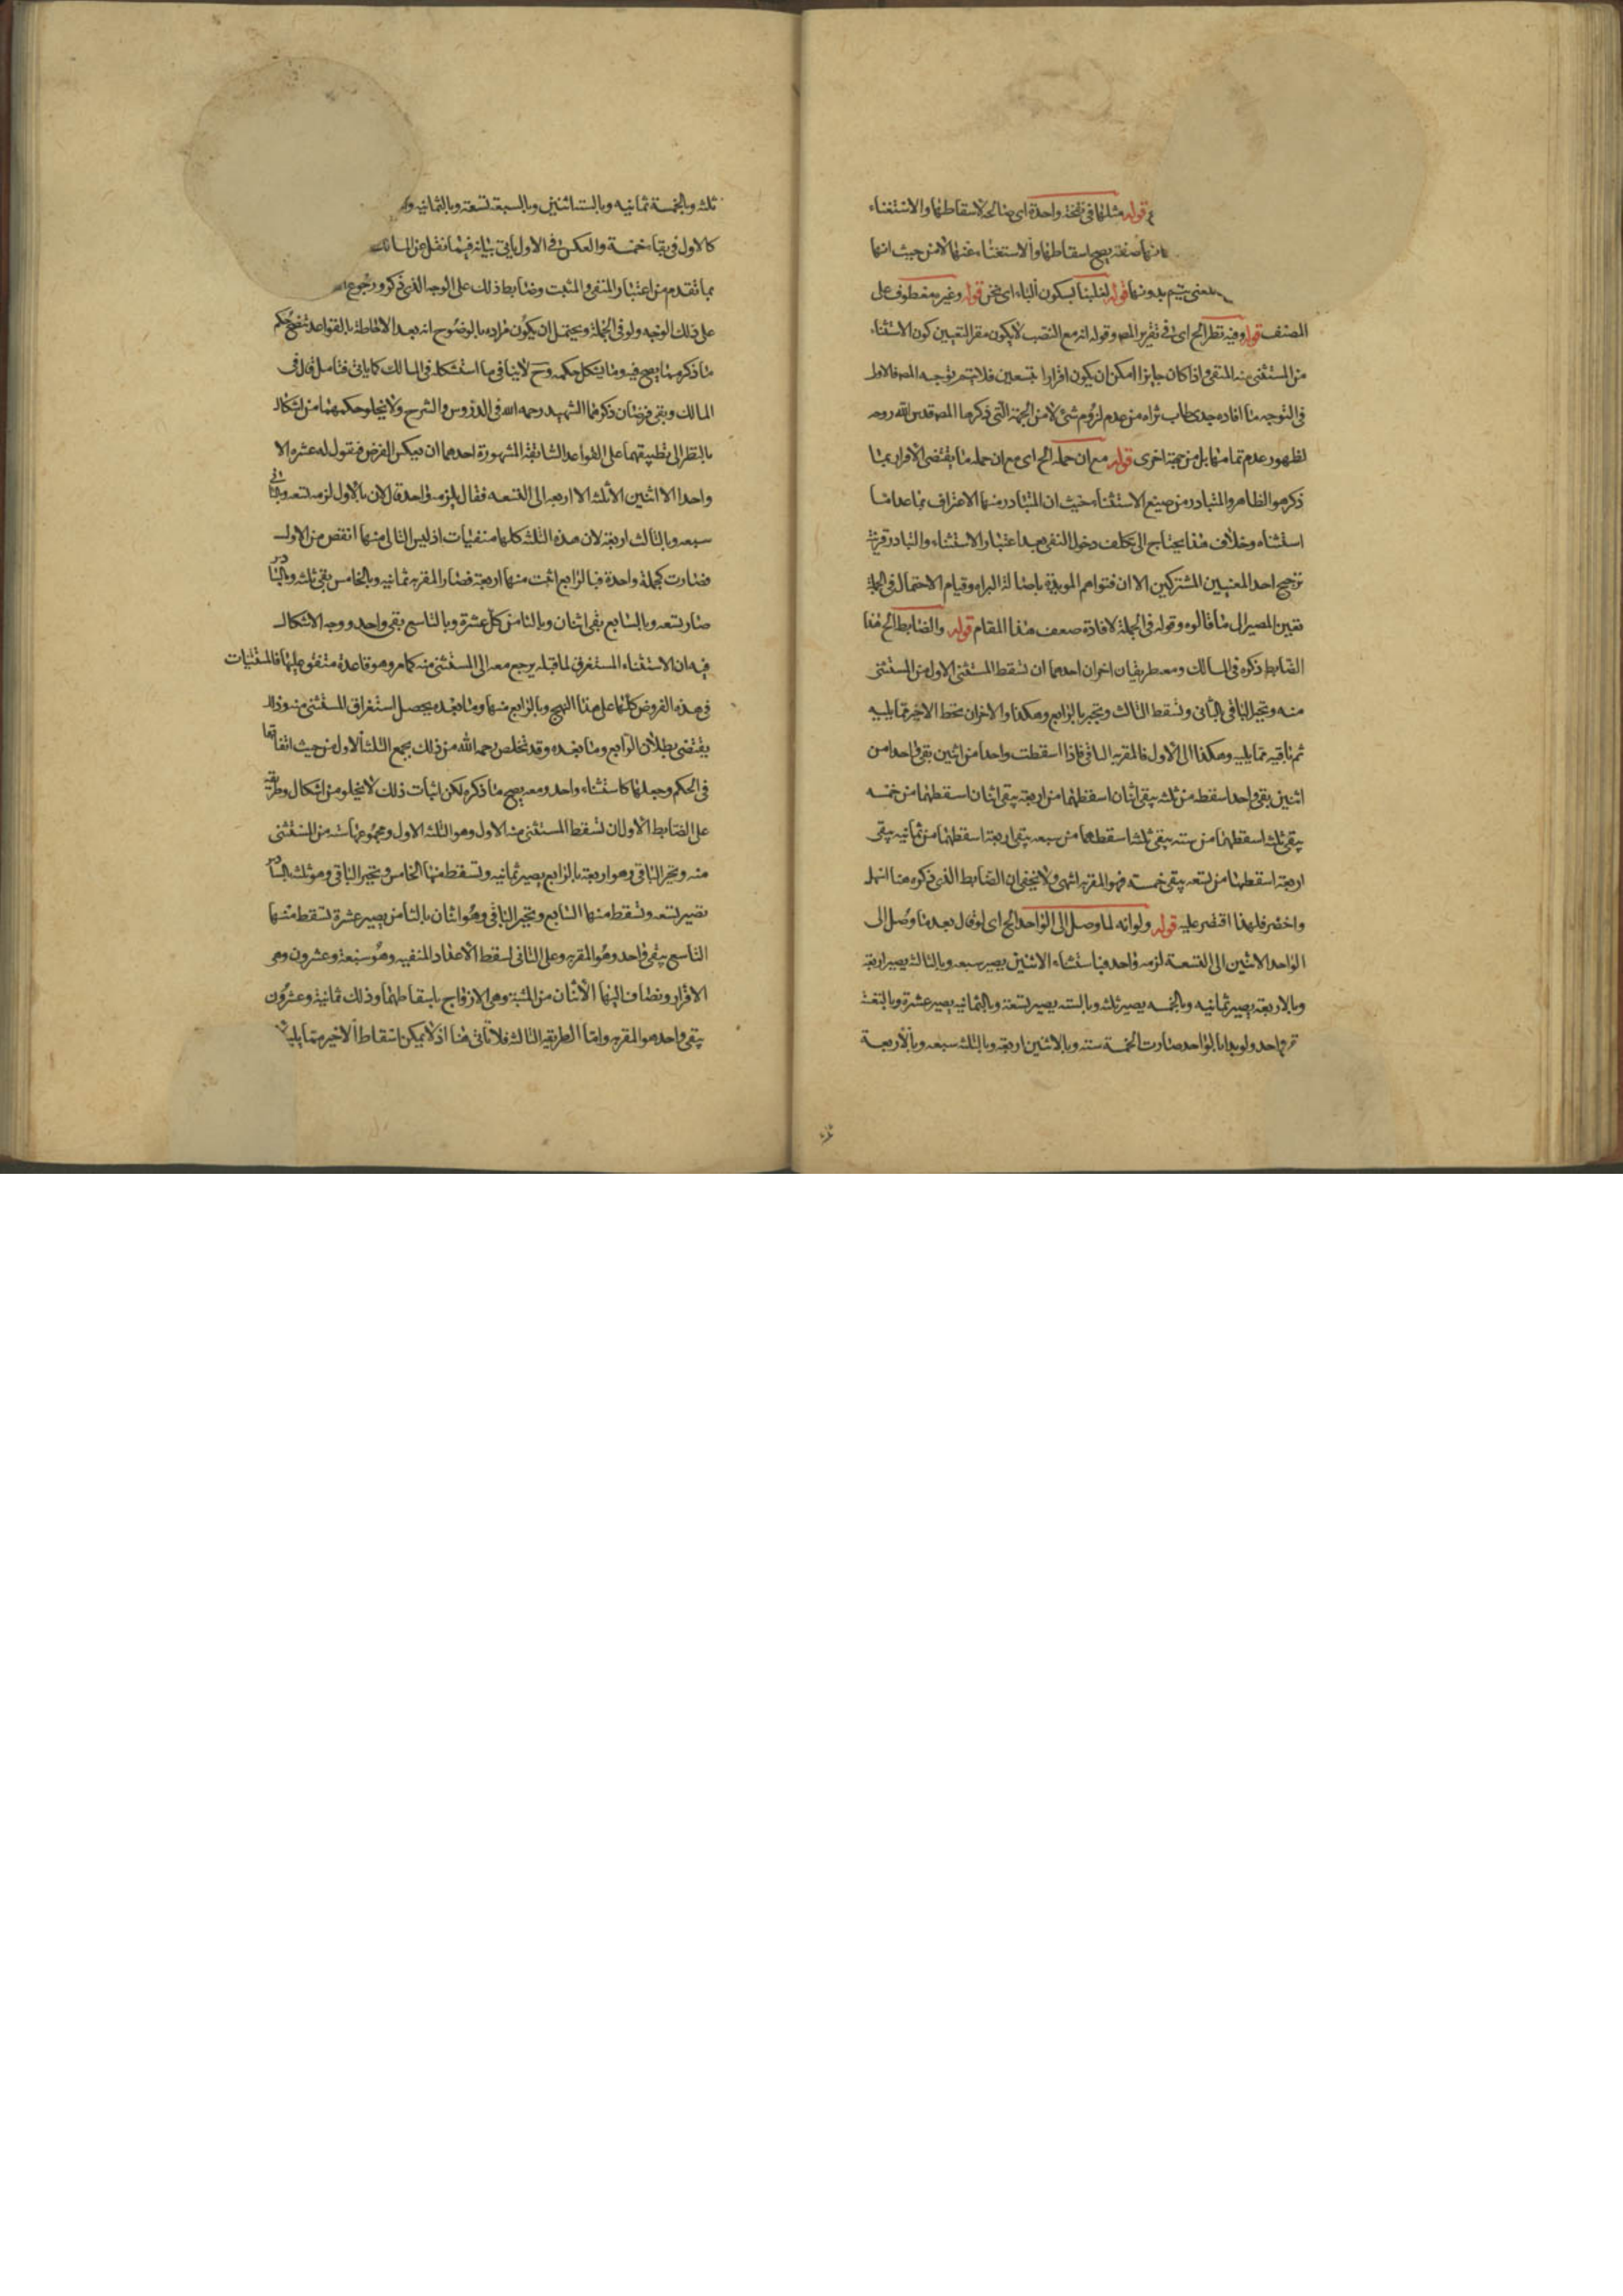 قوله مثلها في نسخة واحدة اى صالحة لاسقاطها والاستغناء
صفة يصح اسقاطها والاستغناء عنها لا من حيث انها
المعنى يتم بدونها قوله لغلبنا بسكون الباء اى نحن قوله وغيره معطوف على
المصنف قوله وفيه نظر الخ اى في تقرير المص وقوله انه مع النصب لا يكون مقرا لتعيين كون الاستثناء
من المستثنى منه المنفى واذا كان جايزا امكن ان يكون اقرارا بتسعين فلا يتم توجيه المص فالاولى
في التوجيه ما افاده جدى طاب ثراه من عدم لزوم شئ لا من الجهة التى ذكرها المص قدس الله روحه
لظهور عدم تمامها بل من جهة اخرى قوله مع ان حمله الخ اى مع ان حمله ما يقتضى الاقرار بما
ذكر هو الظاهر والمتبادر من صيغ الاستثناء حيث ان المتبادر منها الاعتراف بما عدا ما
استثناه وخلاف هذا يحتاج الى تكلف دخول النفى بعد اعتبار الاستثناء والتبادر قرينة
ترجيح احد المعنيين المشتركين الا ان فتواهم المويدة باصالة البراه وقيام الاحتمال في الجملة
تعيين المصير الى ما قالوه وقوله في الجملة لافادة ضعف هذا المقام قوله والضابط الخ هذا
الضابط ذكره في المسالك ومعه طريقان اخران احدهما ان تسقط المستثنى الاول من المستثنى
منه وتجبر الباقى بالثانى وتسقط الثالث وتجبر بالرابع وهكذا والاخر ان تحط الاخير مما يليه
ثم باقيه مما يليه وهكذا الى الاول فالمقر به الباقى فاذا اسقطت واحدا من اثنين بقى واحد من
اثنين بقى واحد اسقطه من ثلثه يبقى اثنان اسقطهما من اربعة يبقى اثنان اسقطهما من خمسه
يبقى ثلثه اسقطها من سته يبقى ثلثة اسقطها من سبعه يبقى اربعة اسقطها من ثمانيه يبقى
اربعة اسقطها من تسعه يبقى خمسه فهو المقر به انتهى ولا يخفى ان الضابط الذى ذكره هنا اسهل
واخصر فلهذا اقتصر عليه قوله ولو انه لما وصل الى الواحد الخ اى لو قال بعد ما وصل الى
الواحد الا اثنين الى التسعة لزمه واحد فباستثناء الاثنين يصير سبعه وبالثالثة يصير اربعة
وبالاربعة يصير ثمانيه وبالخمسه يصير ثلثه وبالسته يصير تسعة وبالثمانيه يصير عشرة وبالتسعة
واحد ولو بدا بالواحد صارت الخمسة سته وبالاثنين اربعة وبالثلثه سبعه وبالاربعة
ثلثه وبالخمسة ثمانيه وبالستة اثنين وبالسبعة تسعة وبالثمانيه
كالاول في بقاء خمسة والعكس في الاول ياتى بيانه فيما نقل عن المسالك
بما تقدم من اعتبار المنفى والمثبت وضابط ذلك على الوجه الذى ذكر ورجوع
على ذلك الوجه ولو في الجملة ويحتمل ان يكون مراده بالوضوح انه بعد الاحاطة بالقواعد تتضح حكم
ما ذكر مما يصح فيه وما يشكل حكمه وح لا ينافى ما استشكله في المسالك كما ياتى فتامل قال في
المسالك وبقى فرضان ذكرهما الشهيد رحمه الله في الدروس والشرح ولا يخلو حكمهما من اشكال
بالنظر الى تطبيقهما على القواعد السابقة المشهورة احدهما ان يعكس الفرض فيقول له عشره الا
واحدا الا اثنين الا ثلثه الا اربعه الى التسعه فقال يلزمه واحدة لان بالاول لزمه تسعه وبالثانى
سبعه وبالثالث اربعة لان هذه الثلثة كلها منفيات اذ ليس التالى منها انقص من الاول
فصارت كجملة واحدة فبالرابع اثبت منها اربعة فصار المقر به ثمانيه وبالخامس بقى ثلثه وبالسادس
صار تسعه وبالسابع بقى اثنان وبالثامن كل عشرة وبالتاسع بقى واحد ووجه الاشكال
فيه ان الاستثناء المستغرق لما قبله يرجع معه الى المستثنى منه كما مر وهو قاعدة متفق عليها فالمستثنيات
في هذه الفروض كلها على هذا النهج وبالرابع منها وما بعده يحصل استغراق المستثنى منه وذلك
يقتضى بطلان الرابع وما بعده وقد تخلص رحمه الله من ذلك بجمع الثلثة الاول من حيث اتفاقها
في الحكم وجعلها كاستثناء واحد ومعه يصح ما ذكره لكن اثبات ذلك لا يخلو من اشكال وطريقه
على الضابط الاول ان تسقط المستثنى منه الاول وهو الثلثه الاول ومجموعها سته من المستثنى
منه وتجبر الباقى وهو اربعة بالرابع يصير ثمانيه وتسقط منها الخامس وتجبر الباقى وهو ثلثه بالسادس
تصير تسعه وتسقط منها السابع وتجبر الباقى وهو اثنان بالثامن يصير عشرة تسقط منها
التاسع يبقى واحد وهو المقر به وعلى الثانى لسقط الاعداد المنفيه وهو سبعة وعشرون وهى
الافراد ويضاف اليها الاثنان من المثبتة وهى الازواج باسقاطها وذلك ثمانية وعشرون
يبقى واحد هو المقر به واما الطريقة الثالثة فلا تاتى هنا اذ لا يمكن اسقاط الاخير مما يليه